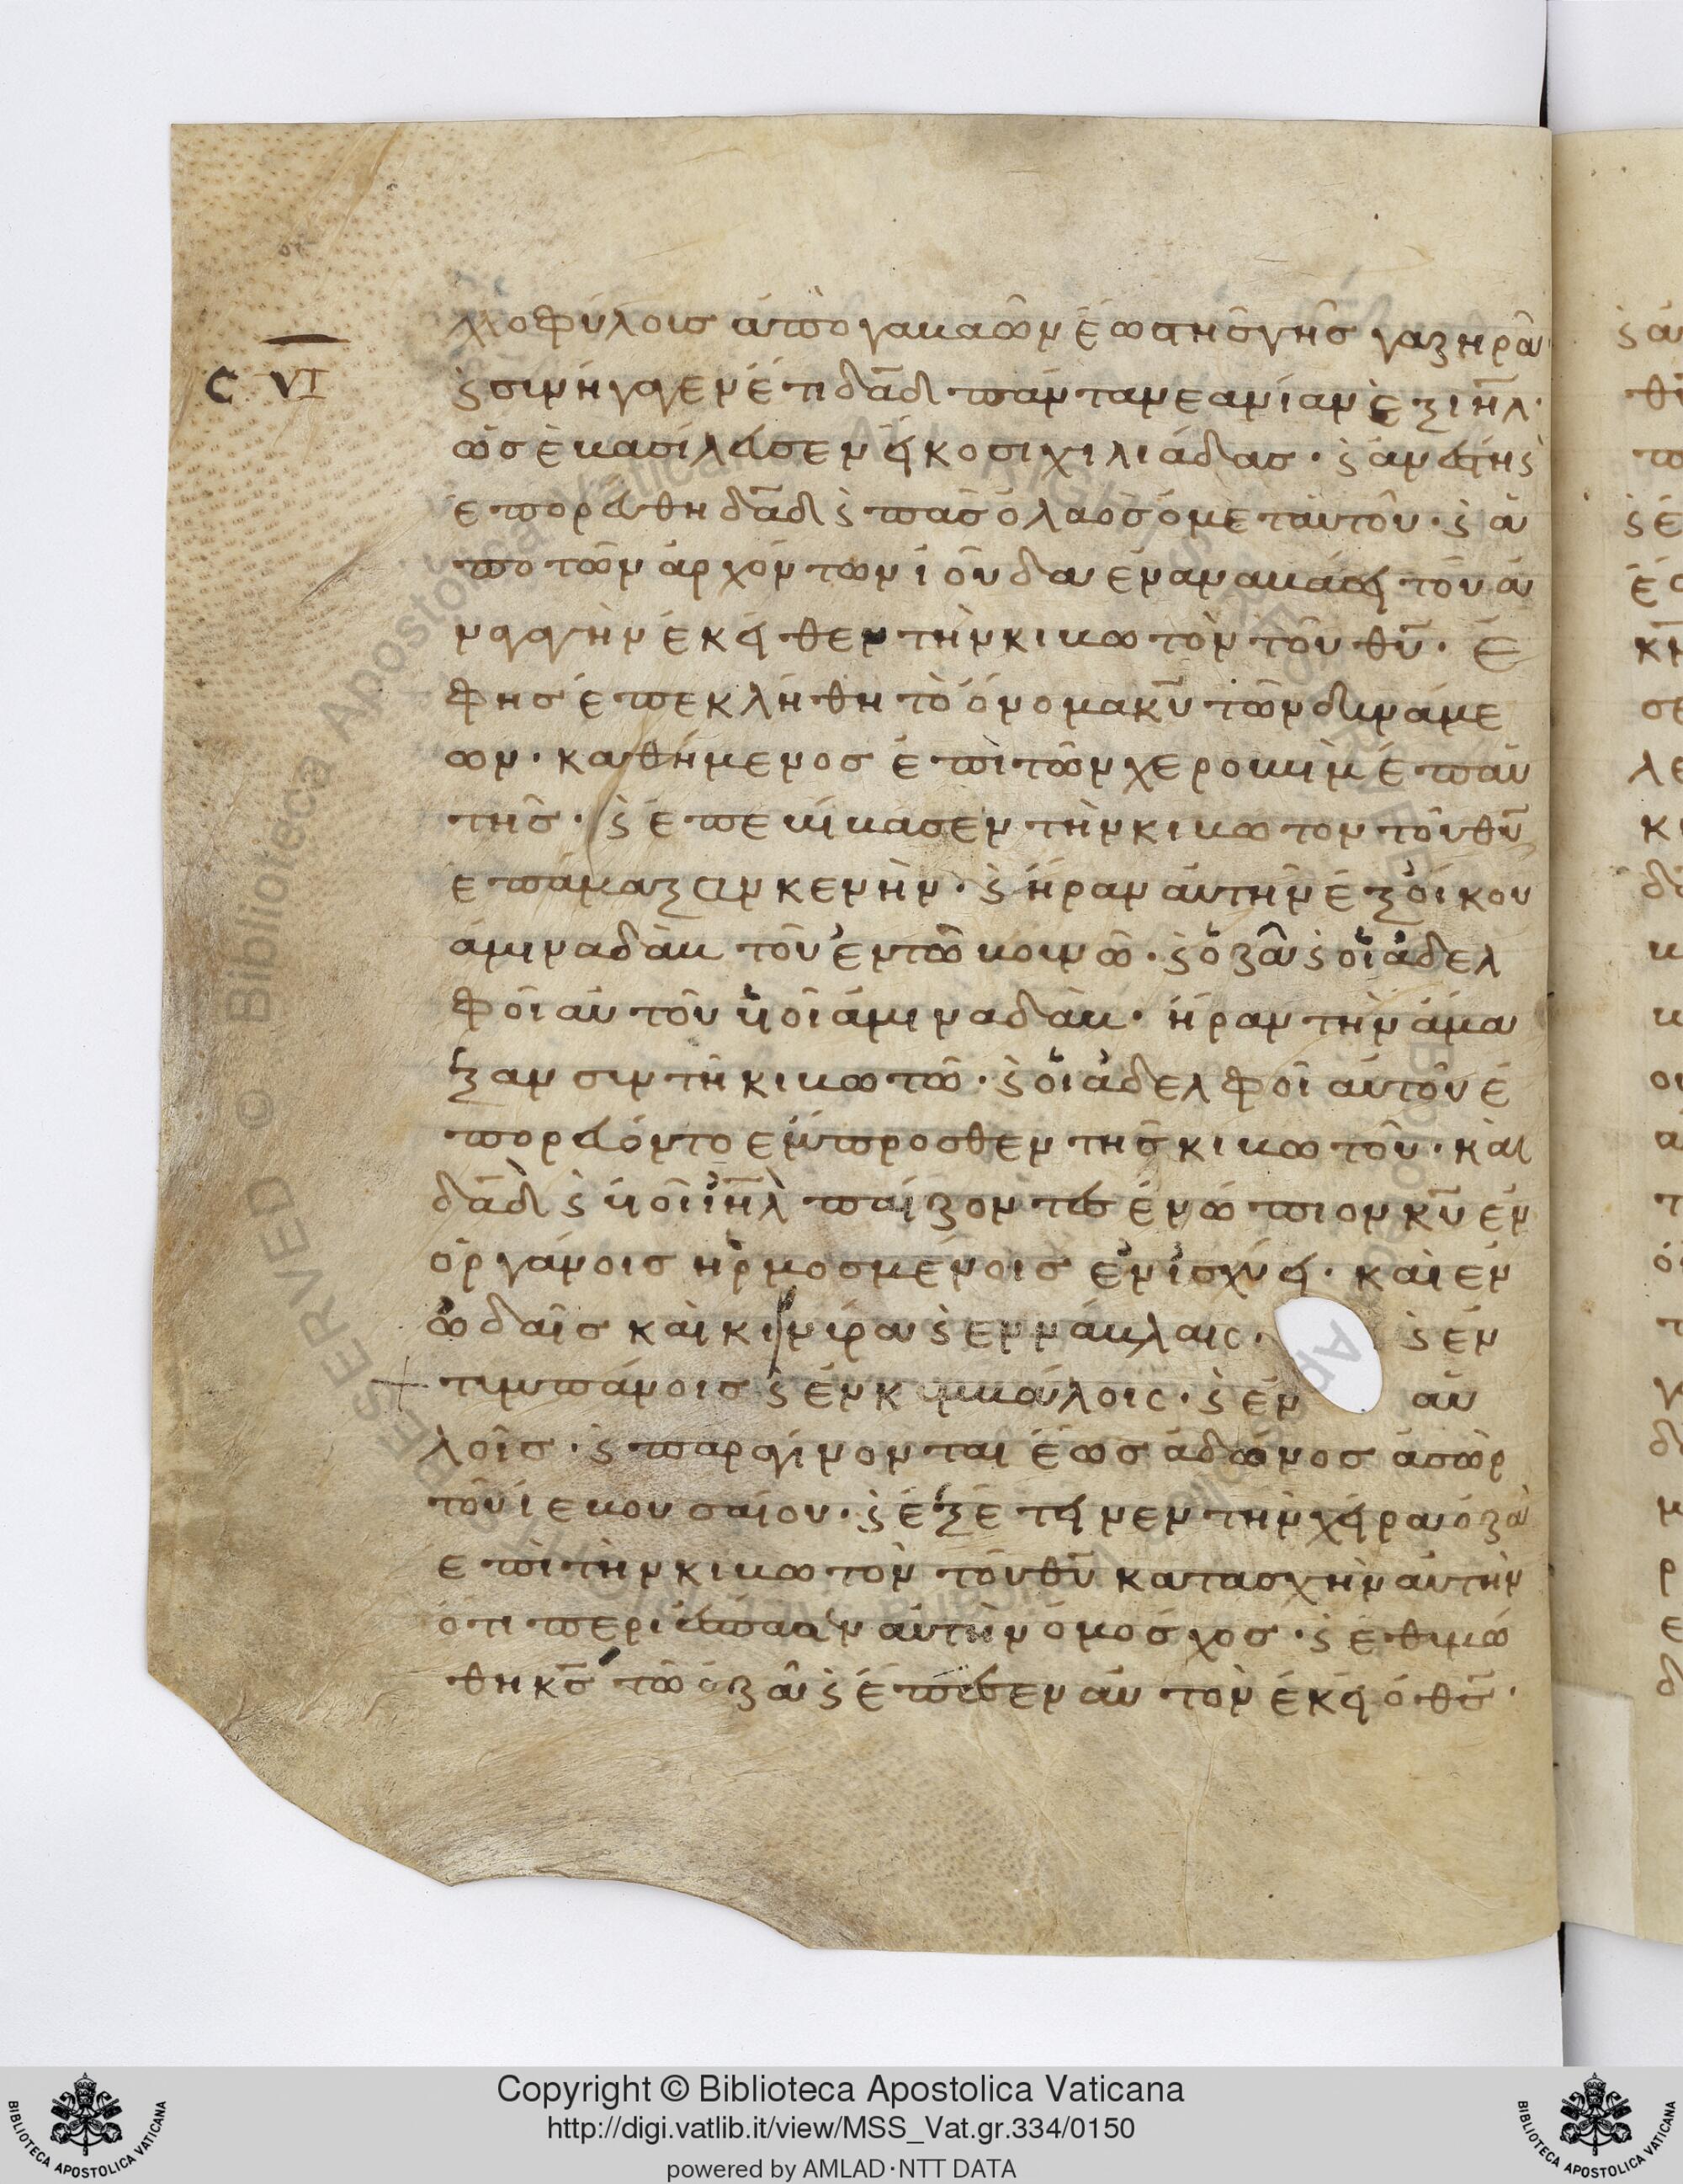 λλοφύλοις ἀπὸ γαβαὼν ἕως τῆς γῆς γαζηρὰ
C VI
ϛ συνήγαγεν ἔτι δᾱδ πάνταν εανίαν ἐξ ιη̄λ·
ὡς ἑβασίλευσεν εἰκοσι χιλιάδας· ϛ ἀνέστη ϛ
ἐπορεύθη δᾱδ ϛ πᾶς ὁ λαὸς ὁ μετ αὐτοῦ· ϛ ἀ
πὸ τῶν ἀρχόντων ἰούδα ἐν ἀναβάσει τοῦ ἀ
ναγαγεῖν ἐκεῖθεν τὴν κιβωτὸν τοῦ θῡ· ἐ
φ ης ἐπεκλήθη τὸ ὄνομα κῡ τῶν δυνάμε
ων· καθήμενος ἐπὶ τῶν χερουβὶμ ἐπ αὐ
τῆς· ϛ ἐπεβίβασεν τὴν κιβωτον τοῦ θῡ
ἐπ ἅμαξαν κενὴν· ϛ ἦραν αὐτὴν ἐξ οἴκου
ἀμιναδὰβ τοῦ ἐν τῶ βουνῶ· ϛ ὀζὰ ϛ οἱ ἀδελ
φοὶ αὐτοῦ υἱοὶ ἀμιναδὰβ· ἦραν τὴν ἅμα
ξαν συν τῆ κιβωτῶ· ϛ οἱ ἀδελφοὶ αὐτοῦ ἐ
πορεύοντο ἔμπροσθεν τῆς κιβωτοῦ· καὶ
δᾱδ ϛ υἱοὶ ιη̄λ παίζοντες ἐνώπιον κῡ ἐν
ὀργάνοις ἡρμοσμένοις ἐν ἰσχύει· καὶ ἐν
ὠδαῖς καὶ κινύρα ϛ ἐν νάβλαις· ϛ ἐν
τυμπάνοις ϛ ἐν κυμβάλοις· ϛ ἐν αὐ
λοῖς· ϛ παραγίνονται ἕως ἅλωνος ἀσὼρ
τοῦ ἰεβουσαίου· ϛ ἐξέτεινεν τὴν χεῖρα ὀζὰ
ἐπὶ τὴν κιβωτὸν τοῦ θῡ κατασχεῖν αὐτὴν
ὅτι περιέσπασεν αὐτὴν ὁ μόσχος· ϛ ἐθυμώ
θη κς̄ τῶ ὀζὰ ϛ ἔπαισεν αὐτὸν ἐκεῖ ὁ θς̄·
Copyright © Biblioteca Apostolica Vaticana
http://digi.vatlib.it/view/MSS_Vat.gr.334/0150
powered by AMLAD·NTT DATA
BIBLIOTECA APOSTOLICA VATICANA
BIBLIOTECA APOSTOLICA VATICANA